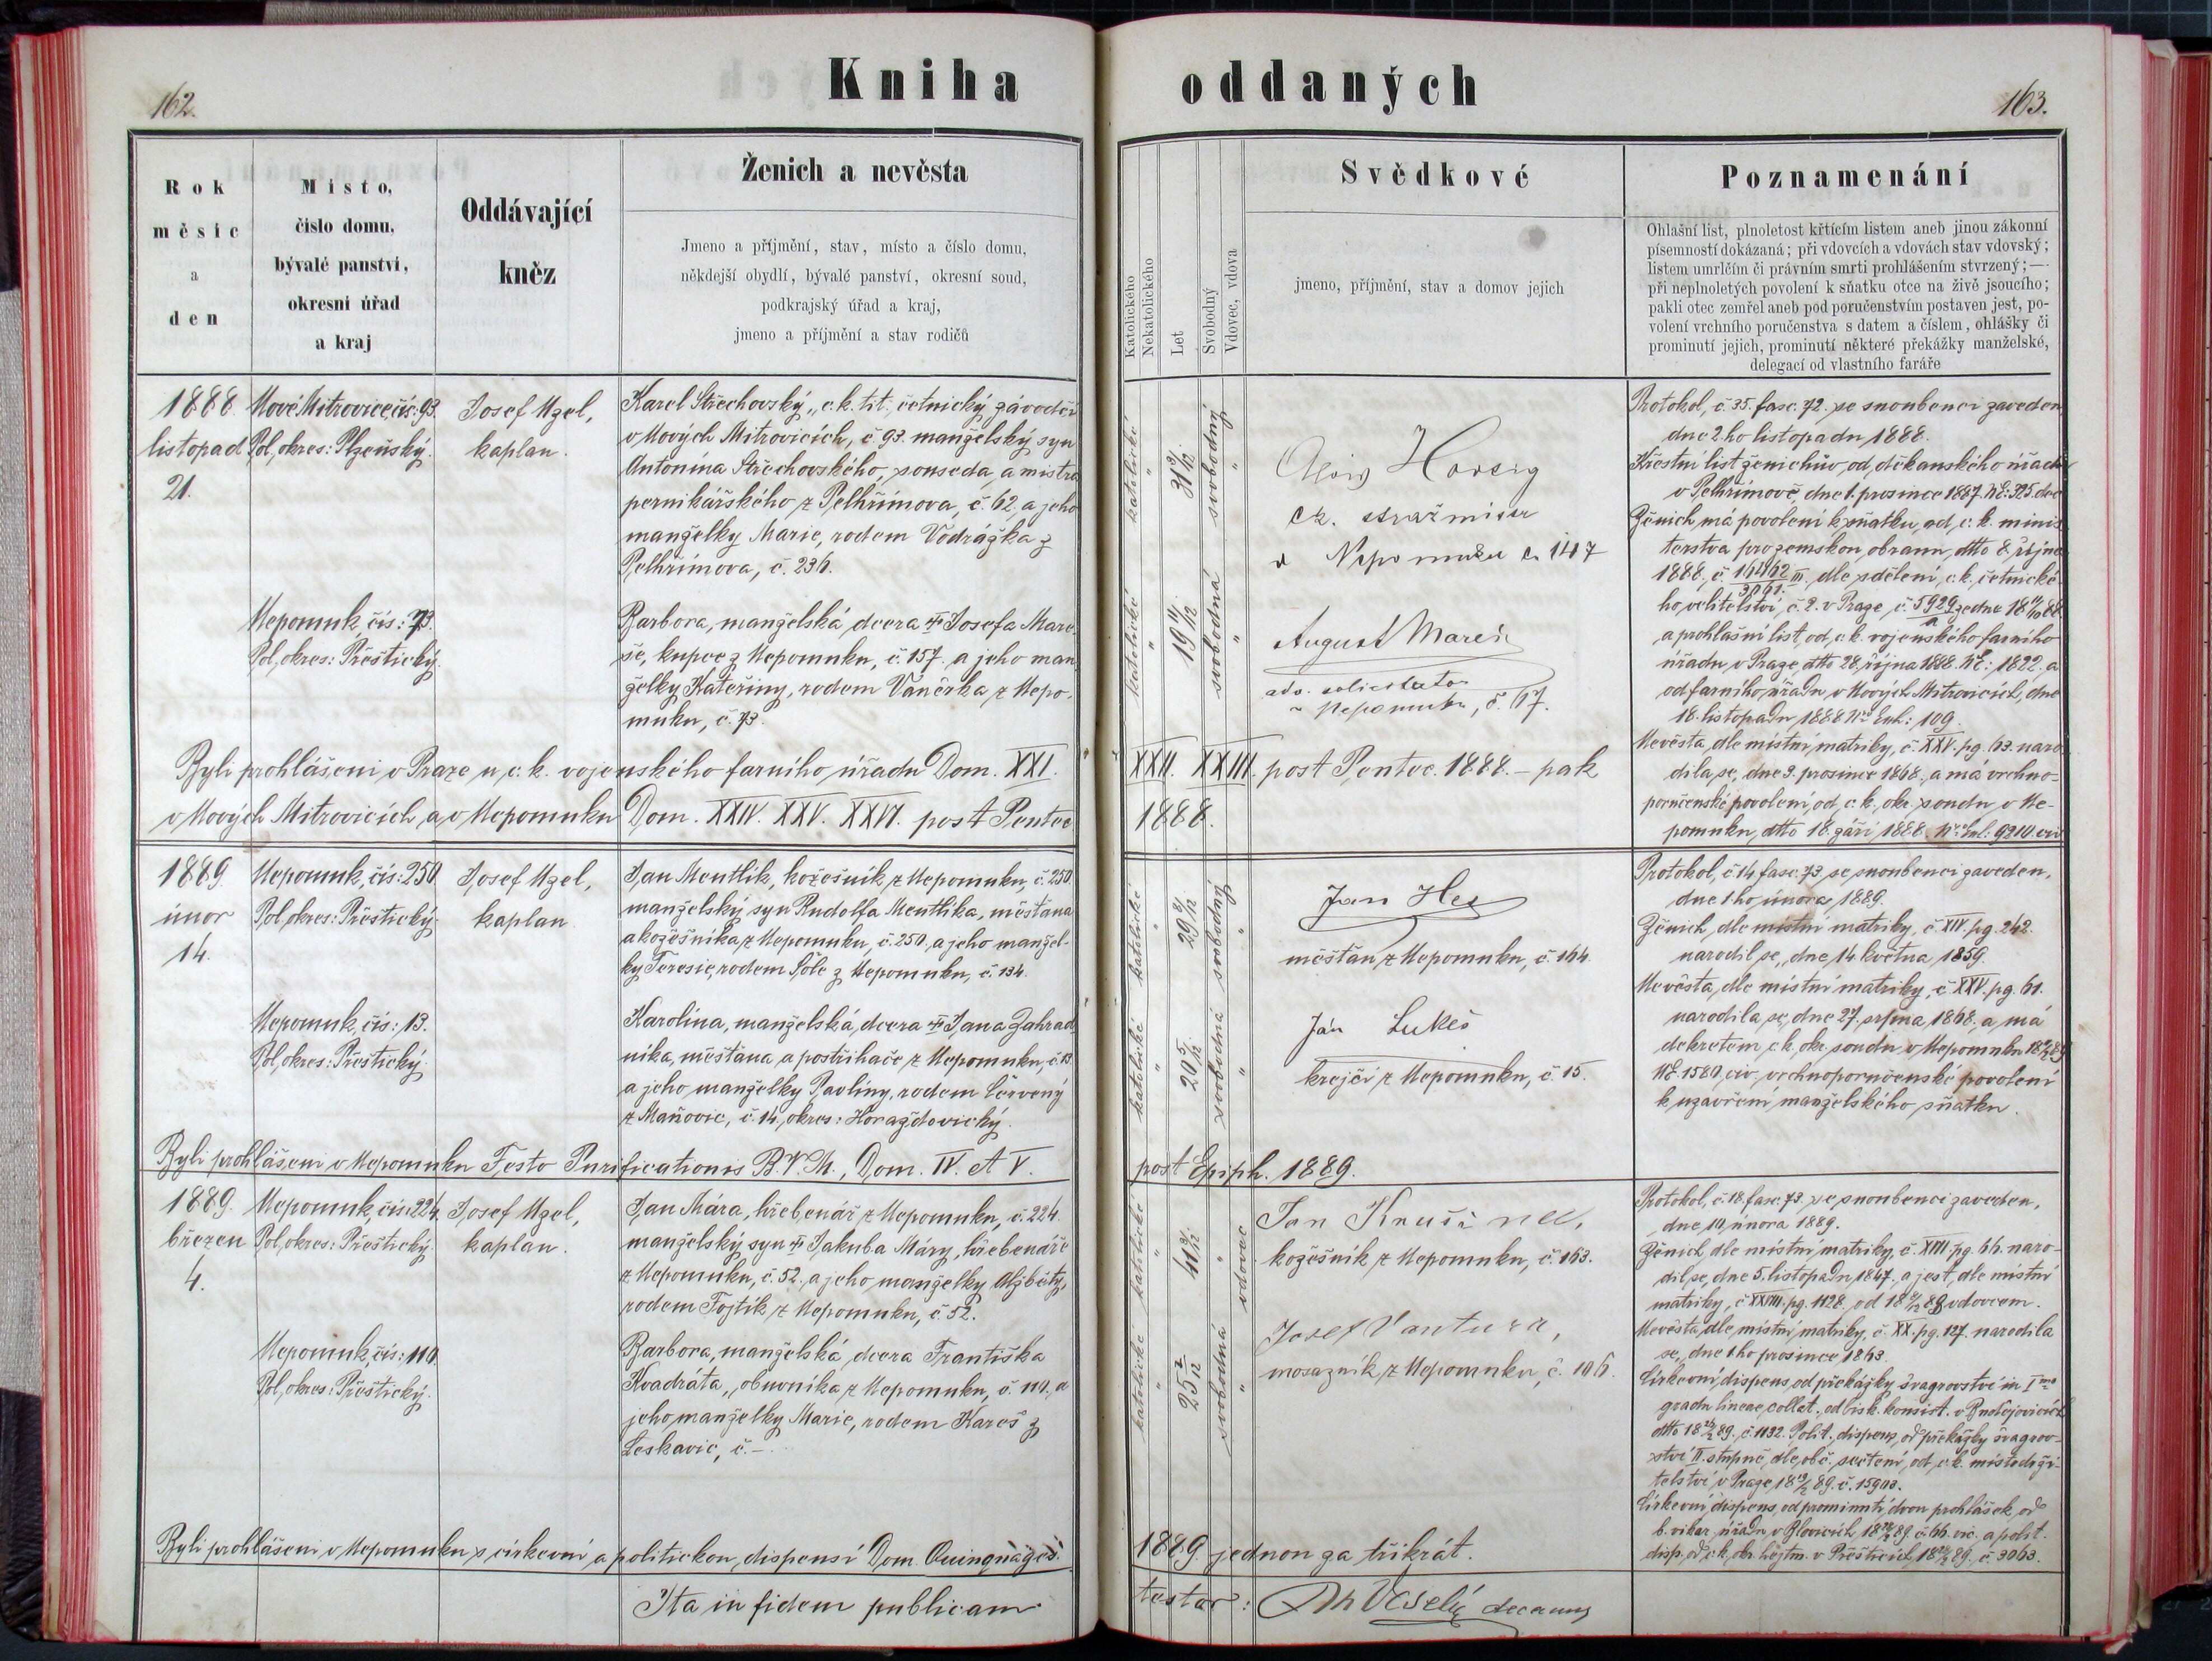 162.
Kniha
oddaných
163.
Rok
měsíc
a
den
Místo,
číslo domu,
bývalé panství,
okresní úřad
a kraj
Oddávající
kněz
Ženich a nevěsta
Jmeno a příjmění, stav, místo a číslo domu,
někdejší obydlí, bývalé panství, okresní soud,
podkrajský úřad a kraj,
jmeno a příjmění a stav rodičů
Katolického
Nekatolického
Let
Svobodný
Vdovec, vdova
Svědkové
jmeno, příjmění, stav a domov jejich
Poznamenání
Ohlašní list, plnoletost křtícím listem aneb jinou zákonní
písemností dokázaná; při vdovcích a vdovách stav vdovský;
listem umrlčím či právním smrti prohlášením stvrzený; —
při neplnoletých povolení k sňatku otce na živě jsoucího;
pakli otec zemřel aneb pod poručenstvím postaven jest, po-
volení vrchního poručenstva s datem a číslem, ohlášky či
prominutí jejich, prominutí některé překážky manželské,
delegací od vlastního faráře
1888.
listopad
21.
Nové Mitrovice, čís: 93.
Pol. okres: Plzeňský.
Josef Uzel,
kaplan.
Karel Střechovský, c. k. tit. četnický závodčí
v Nových Mitrovicích, č 93. manželský syn
Antonína Střechovského, souseda a mistra
pernikářského z Pelhřimova, č. 62, a jeho
manželky Marie, rodem Vodrážka z
Pelhřimova, č. 236.
Nepomuk, čís: 73.
Pol. okres: Přeštický.
Barbora, manželská dcera † Josefa Mare-
še, kupce z Nepomuku, č. 157. a jeho man-
želky Kateřiny, rodem Vaněrka z Nepo-
muku, č. 73.
katolické " 31 svobodný "
katolické " 19 11/12 svobodná "
Alois
c.k. stražmistr
v Nepomuku č. 147
August Mareš
adv. solicitator
v Nepomuku, č. 67.
Protokol, č. 35. fasc. 72. se snoubenci zaveden,
dne 2. ho listopadu 1888.
Křestní list ženichův, od děkanského úřadu
v Pelhřimově, dne 1. prosince 1887. NE: 325. dec
Ženich má povolení k sňatku, od c. k. minis-
terstva pro zemskou obranu, dtto 8. října
1888, č. 16462/3091. III. dle sdělení c. k. četnické-
ho velitelství, č. 2. v Praze, č. 5929 ze dne 18 88.
a prohlašní list, od c. k. vojenského farního
úřadu v Praze, dtto 28. října 1888. NE: 1822. a
od farního úřadu v Nových Mitrovicích, dne
18. listopadu 1888 Nro Exh: 109.
Nevěsta, dle místní matriky, č. XXV. pg. 63. naro-
dila se, dne 3. prosince 1868. a má vrchno-
poručenské povolení, od c. k. okr. soudu v Ne-
pomuku, dtto 18. září 1888. Nro Exh. 9210. civ
Byli prohlášeni v Praze u c. k. vojenského farního úřadu Dom. XXI. XXII. XXIII. post Pentec. 1888. – pak
v Nových Mitrovicích a v Nepomuku Dom. XXIV. XXV. XXVI. post Pentec 1888.
1889.
únor
14.
Nepomuk, čís: 250.
Pol. okres: Přeštický.
Josef Uzel,
kaplan
Jan Mentlík, kožešník z Nepomuku, č. 250.
manželský syn Rudolfa Mentlíka, měšťana
a kožešníka z Nepomuku, č. 250, a jeho manžel-
ky Teresie, rodem Šôle z Nepomuku, č. 134.
Nepomuk, čís: 13.
Pol. okres: Přeštický.
Karolina, manželská dcera † Jana Zahrad-
níka, měšťana a postřihače z Nepomuku, č. 13
a jeho manželky Pavliny, rodem Červený
z Maňovic, č. 14, okres: Horažďovický.
katolické " 29 9/12 svobodný "
katolické " 20 5/12 svobodná "
Jan Hes
měšťan z Nepomuku, č. 164.
Ján Lukeš
krejčí z Nepomuku, č. 15.
Protokol, č 14 fasc: 73 se snoubenci zaveden,
dne 1. ho února 1889.
Ženich, dle místní matriky, č. XIV. pg. 242.
narodil se, dne 14. května 1859.
Nevěsta, dle místní matriky, č. XXV. pg. 61.
narodila se, dne 27. srpna 1868, a má
dekretem c. k. okr. soudu v Nepomuku 18 89
NE. 1580, civ, vrchnoporučenské povolení
k uzavření manželského sňatku.
Byli prohlášeni v Nepomuku Festo Purificationis B. V. M., Dom. IV. et V. post Epiph. 1889.
1889.
březen
4.
Nepomuk, čís: 224.
Pol. okres: Přeštický.
Josef Uzel,
kaplan.
Jan Mára, hřebenář z Nepomuku, č. 224.
manželský syn † Jakuba Máry, hřebenáře
z Nepomuku, č. 52. a jeho manželky Alžběty,
rodem Fojtík z Nepomuku, č. 52.
Nepomuk, čís: 110.
Pol. okres: Přeštický.
Barbora, manželská dcera Františka
Kvadrata, obuvníka z Nepomuku, č. 110, a
jeho manželky Marie, rodem Kareš z
Leskavic, č. –.
katolické " 41 3/12 " vdovec
katolické " 25 2/12 svobodná "
Jan
kožešník z Nepomuku, č. 163.
Josef Vantura,
mosazník z Nepomuku, č. 106.
Protokol, č. 18. fasc. 73. se snoubenci zaveden,
dne 10. února 1889.
Ženich, dle místní matriky, č. XVIII. pg. 66. naro-
dil se, dne 5. listopadu 1847. a jest, dle místní
matriky, č. XXVIII. pg. 1128. od 18 88 vdovcem.
Nevěsta, dle místní matriky, č. XX. pg. 127. narodila
se, dne 1. ho prosince 1863.
Církevní dispens, od překážky švagrovství in Imo
gradu lineae collat., od bisk. konsist. v Budějovicích
dtto 18 89. č. 1132. Polit. dispens, od překážky švagrov-
ství II. stupně, dle obč. sečtení, od c. k. místodrži-
telství v Praze, 18 89. č. 15903.
Církevní dispens, od prominutí dvou prohlášek, od
b. vikar. úřadu v Blovicích 18 89. č. 66. vic. a polit.
disp. od c. k. okr. hejtm. v Přešticích, 18 89. č. 3063.
Byli prohlášeni v Nepomuku s církevní a politickou dispensí Dom. Quinquages. 1889. jednou za třikrát.
Ita in fidem publicam testor: Veselý decanus